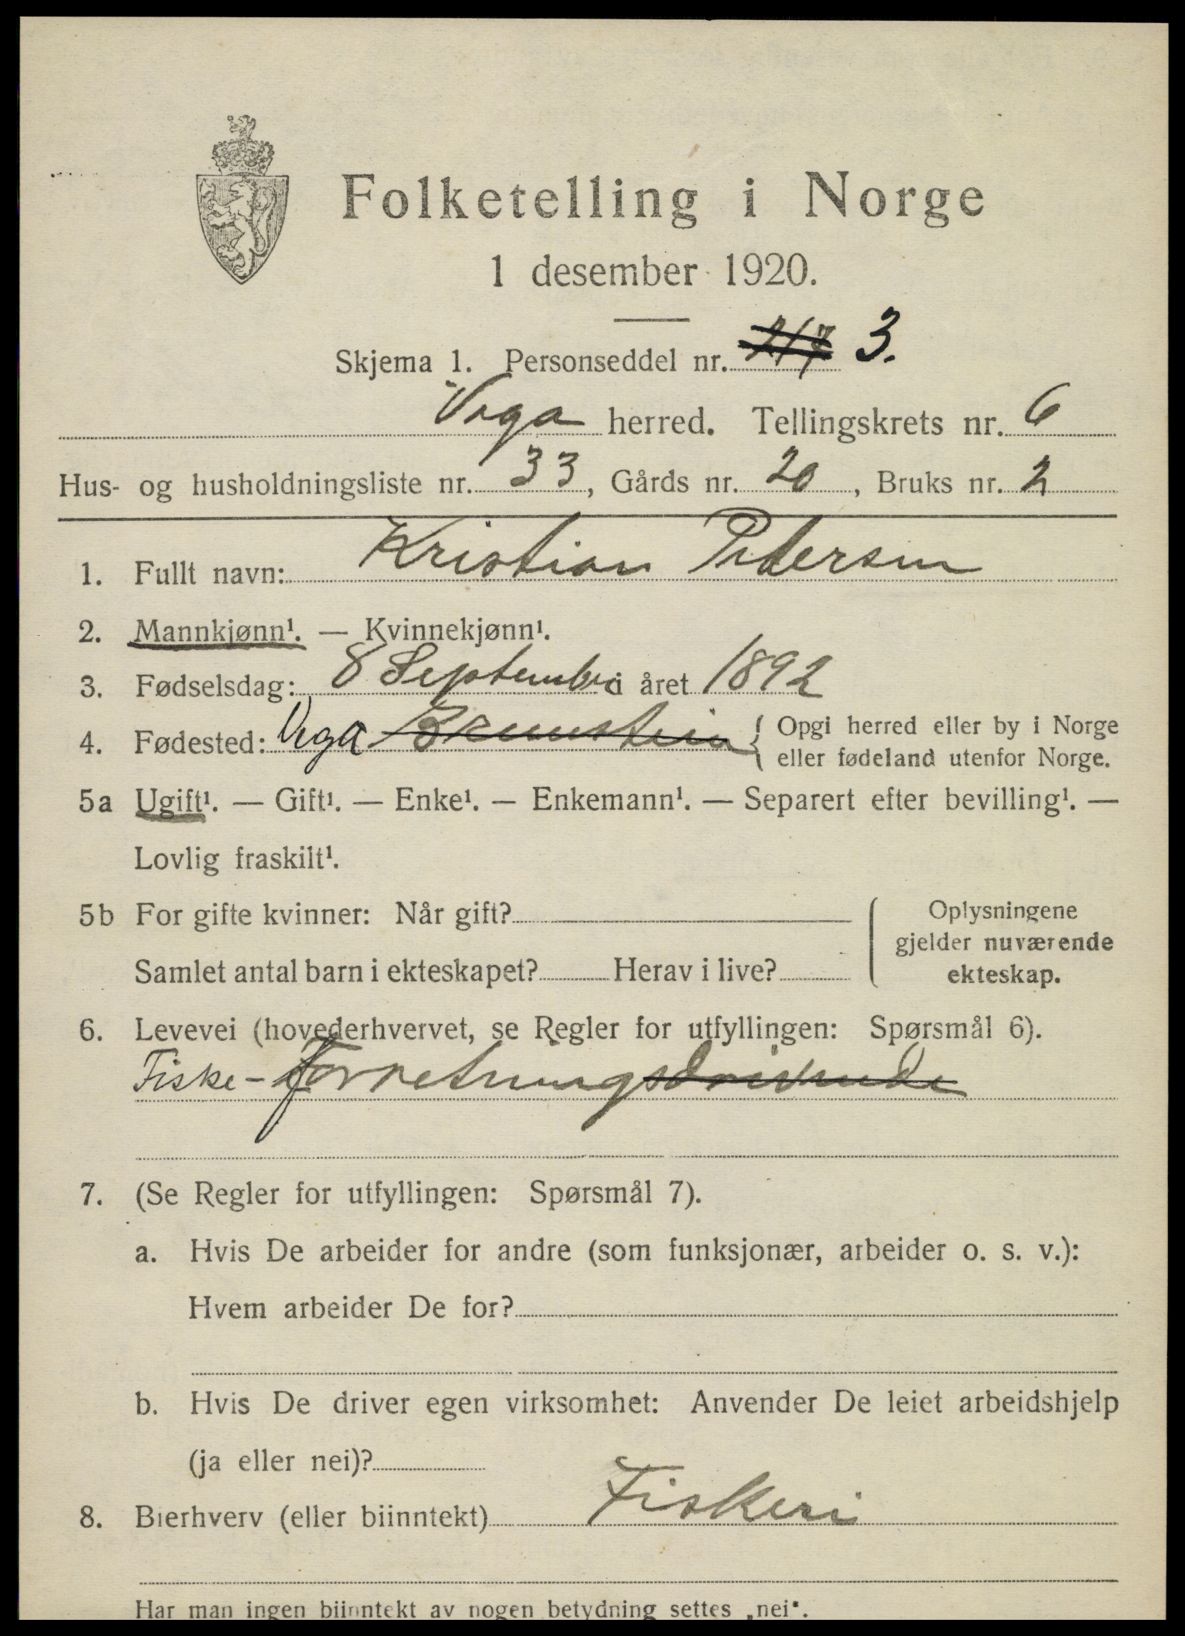 Folketelling i Norge
1 desember 1920.
Skjema 1. Personseddel nr. 217 3.
Vega herred. Tellingskrets nr. 6
Hus- og husholdningsliste nr. 33, Gårds nr. 20, Bruks nr. 2
1. Fullt navn: Kristian Pedersen
2. Mannkjønn¹. — Kvinnekjønn¹.
3. Fødselsdag: 8 September i året 1892
4. Fødested: Vega Bremstein { Opgi herred eller by i Norge
eller fødeland utenfor Norge.
5a Ugift¹. — Gift¹. — Enke¹. — Enkemann¹. — Separert efter bevilling¹. —
Lovlig fraskilt¹.
5b For gifte kvinner: Når gift?
Samlet antal barn i ekteskapet? Herav i live?
Oplysningene
gjelder nuværende
ekteskap.
6. Levevei (hovederhvervet, se Regler for utfyllingen: Spørsmål 6).
Fiske-forretningsdrivende
7. (Se Regler for utfyllingen: Spørsmål 7).
a. Hvis De arbeider for andre (som funksjonær, arbeider o. s. v.):
Hvem arbeider De for?
b. Hvis De driver egen virksomhet: Anvender De leiet arbeidshjelp
(ja eller nei)?
8. Bierhverv (eller biinntekt) Fiskeri
Har man ingen biinntekt av nogen betydning settes „nei".